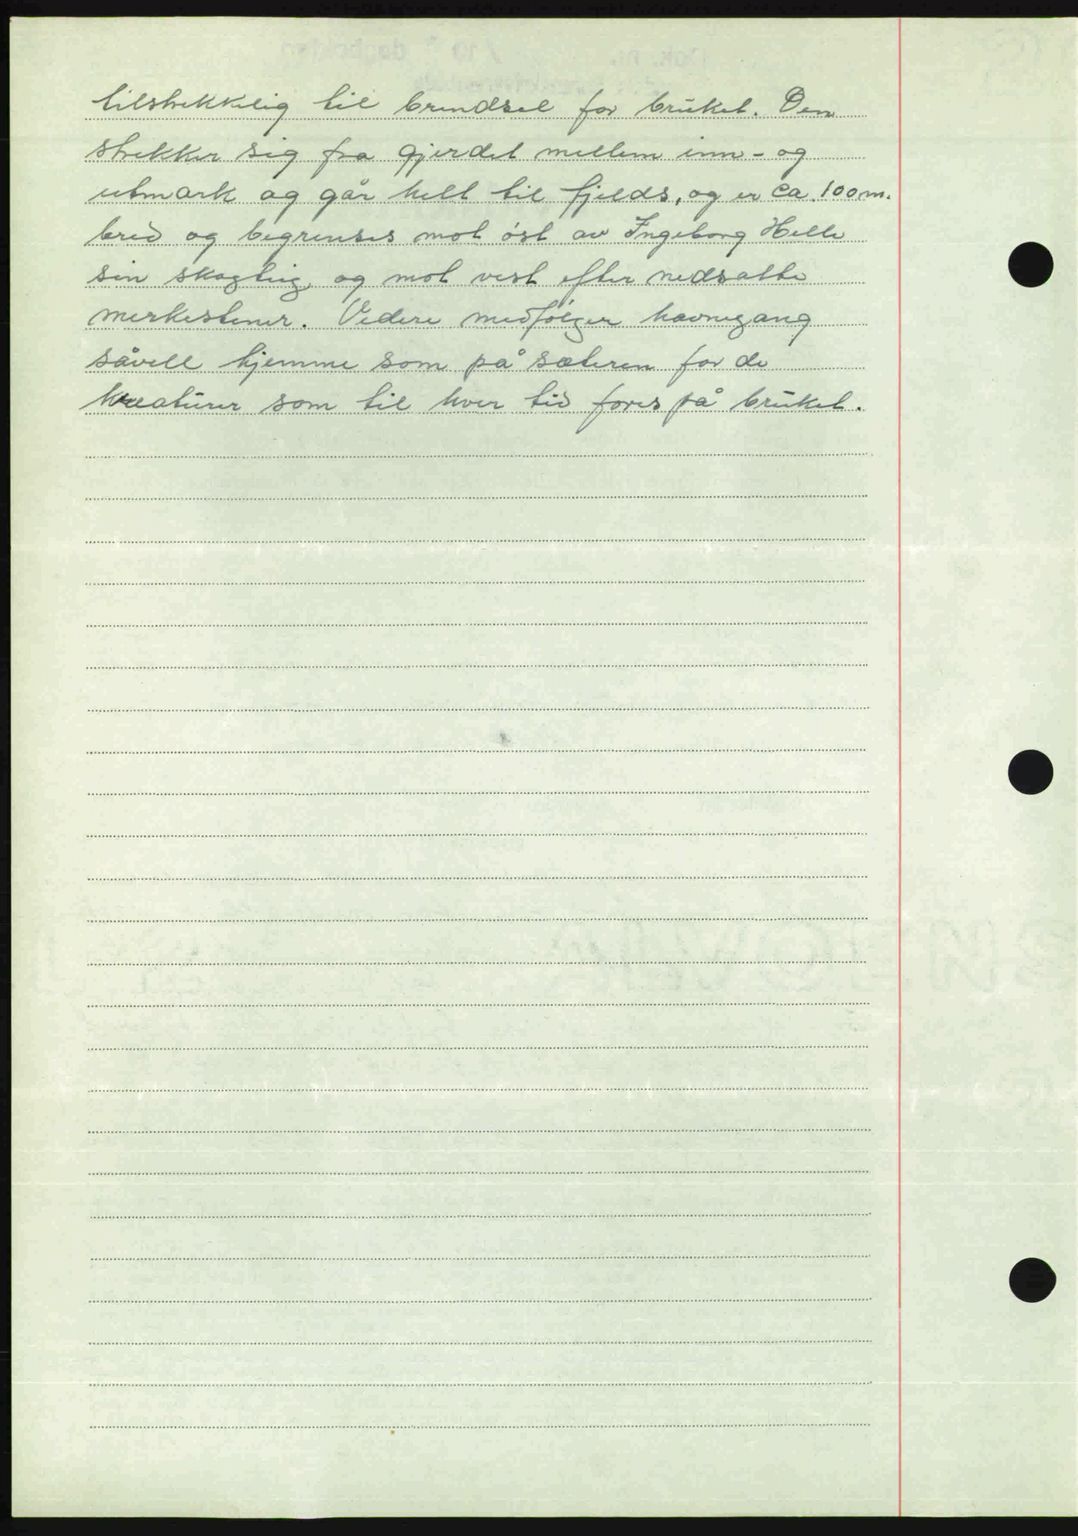 tilstrekkelig til brendsel for bruket. Den
strekker sig fra gjerdet mellem inn- og
utmark og går helt til fjelds, og er ca. 100 m.
bred og begrenses mot øst av Ingeborg Helle
sin skogteig og mot vest efter nedsatte
merkestener. Videre medfølger havnegang
såvell hjemme som på sæteren for de
kreaturer som til hver tid fores på bruket.